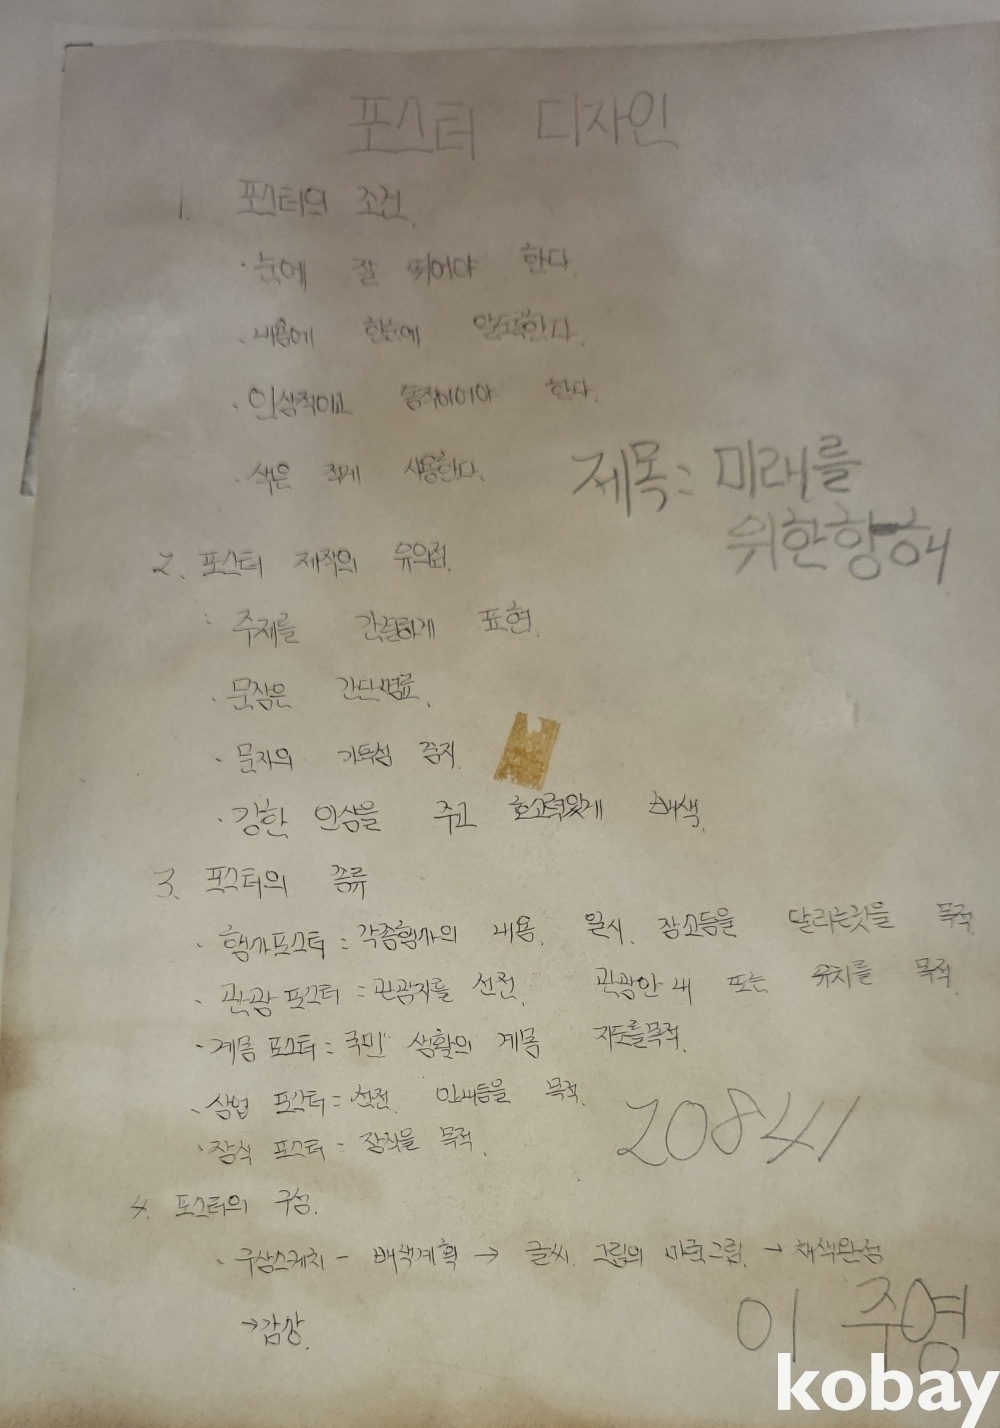 포스터 디자인
1. 포스터의 조건.
· 눈에 잘 띄어야 한다.
· 내용에 한눈에 알도록한다.
· 인상적이고 동적이어야 한다.
· 색은 적게 사용한다.
제목: 미래를
위한항해
2. 포스터 제작의 유의점.
· 주제를 간결하게 표현.
· 문장은 간단명료.
· 문자의 가독성 중지.
· 강한 인상을 주고 호소력있게 배색.
3. 포스터의 종류
· 행사포스터 : 각종행사의 내용, 일시, 장소등을 알리는것을 목적
· 관광 포스터 : 관광지를 선전, 관광안내 또는 유치를 목적.
· 계몽 포스터 : 국민 생활의 계몽 지도를목적.
· 상업 포스터 : 선전, 안내등을 목적.
· 장식 포스터 - 장식을 목적.
20841
4. 포스터의 구성.
· 구상스케치 - 배색계획 → 글씨, 그림의 그림. → 채색완성
→ 감상.
이 주영
kobay